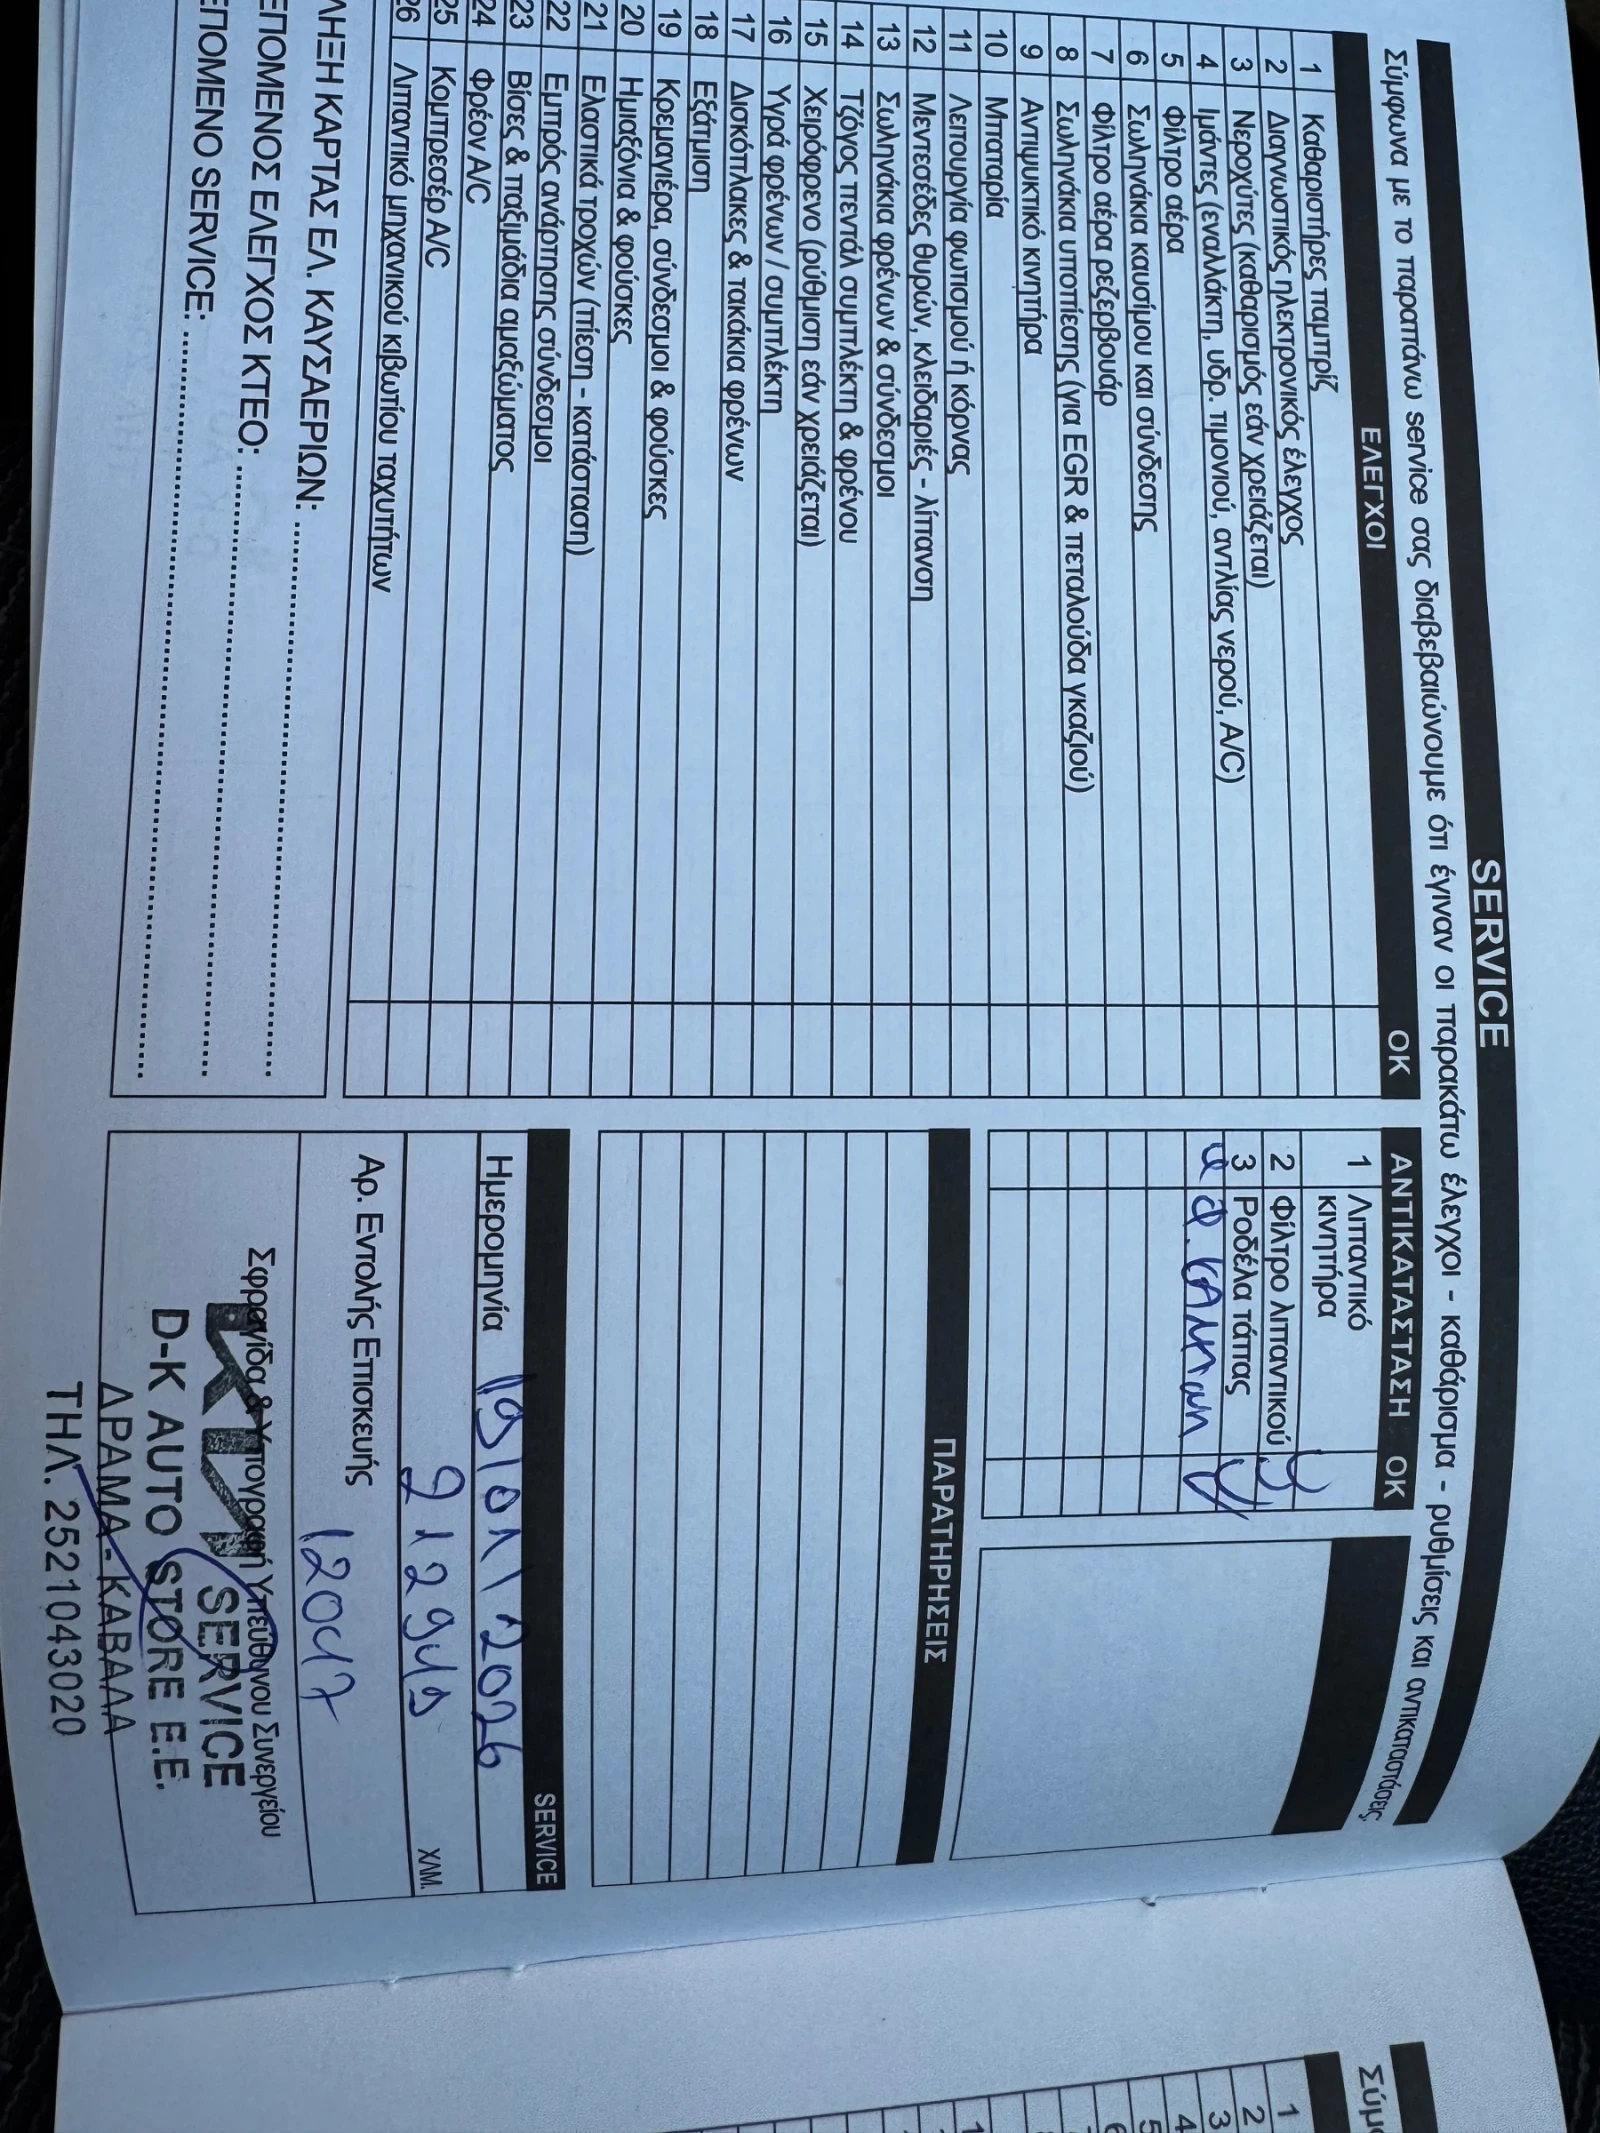 SERVICE
Σύμφωνα με το παραπάνω service σας διαβεβαιώνουμε ότι έγιναν οι παρακάτω έλεγχοι - καθάρισμα - ρυθμίσεις και αντικαταστάσεις
ΕΛΕΓΧΟΙ OK
1 Καθαριστήρες παμπρίζ
2 Διαγνωστικός ηλεκτρονικός έλεγχος
3 Νεροχύτες (καθαρισμός εάν χρειάζεται)
4 Ιμάντες (εναλλάκτη, υδρ. τιμονιού, αντλίας νερού, A/C)
5 Φίλτρο αέρα
6 Σωληνάκια καυσίμου και σύνδεσης
7 Φίλτρο αέρα ρεζερβουάρ
8 Σωληνάκια υποπίεσης (για EGR & πεταλούδα γκαζιού)
9 Αντιψυκτικό κινητήρα
10 Μπαταρία
11 Λειτουργία φωτισμού ή κόρνας
12 Μεντεσέδες θυρών, κλειδαριές - λίπανση
13 Σωληνάκια φρένων & σύνδεσμοι
14 Τζόγος πεντάλ συμπλέκτη & φρένου
15 Χειρόφρενο (ρύθμιση εάν χρειάζεται)
16 Υγρά φρένων / συμπλέκτη
17 Δισκόπλακες & τακάκια φρένων
18 Εξάτμιση
19 Κρεμαγιέρα, σύνδεσμοι & φούσκες
20 Ημιαξόνια & φούσκες
21 Ελαστικά τροχών (πίεση - κατάσταση)
22 Εμπρός ανάρτησης σύνδεσμοι
23 Βίσες & παξιμάδια αμαξώματος
24 Φρέον A/C
25 Κομπρεσέρ A/C
26 Λιπαντικό μηχανικού κιβωτίου ταχυτήτων
ΛΗΞΗ ΚΑΡΤΑΣ ΕΛ. ΚΑΥΣΑΕΡΙΩΝ:
ΕΠΟΜΕΝΟΣ ΕΛΕΓΧΟΣ ΚΤΕΟ:
ΕΠΟΜΕΝΟ SERVICE:
ΑΝΤΙΚΑΤΑΣΤΑΣΗ OK
1 Λιπαντικό
κινητήρα
2 Φίλτρο λιπαντικού
3 Ροδέλα τάπας
4 Φ.
ΠΑΡΑΤΗΡΗΣΕΙΣ
SERVICE
Ημερομηνία 19/01/2026
212949 ΧΛΜ.
Αρ. Εντολής Επισκευής
12047
Σφραγίδα & Υπογραφή Υπεύθυνου Συνεργείου
KIA SERVICE
D-K AUTO STORE E.E.
ΔΡΑΜΑ - ΚΑΒΑΛΑ
ΤΗΛ. 2521043020
Σύμφ
1
2
3
4
5
6